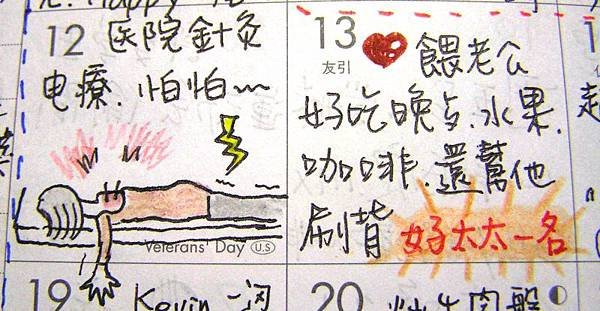 Happy
12 医院針灸
电療.怕怕~~
Veterans' Day U.S
13
友引
餵老公
好吃晚点.水果.
咖啡.還幫他
刷背 好太太一名
19 Kevin 一
20